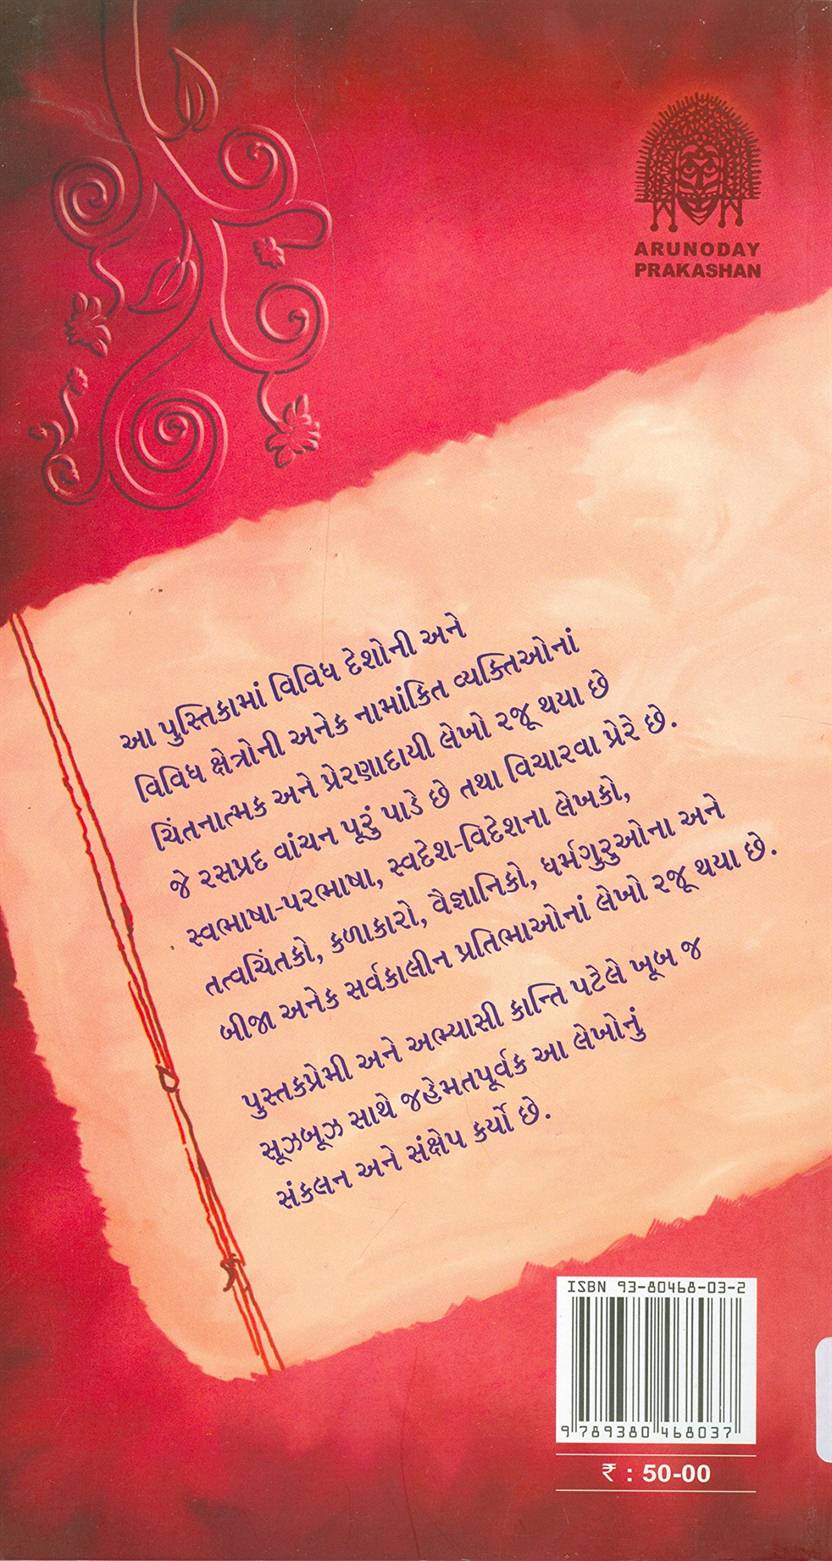 ARUNODAY
PRAKASHAN
આ પુસ્તિકામાં વિવિધ દેશોની અને
વિવિધ ક્ષેત્રોની અનેક નામાંકિત વ્યક્તિઓનાં
ચિંતનાત્મક અને પ્રેરણાદાયી લેખો રજૂ થયા છે
જે રસપ્રદ વાંચન પૂરું પાડે છે તથા વિચારવા પ્રેરે છે.
સ્વભાષા-પરભાષા, સ્વદેશ-વિદેશના લેખકો,
તત્વચિંતકો, કળાકારો, વૈજ્ઞાનિકો, ધર્મગુરુઓના અને
બીજા અનેક સર્વકાલીન પ્રતિભાઓનાં લેખો રજૂ થયા છે.
પુસ્તકપ્રેમી અને અભ્યાસી કાન્તિ પટેલે ખૂબ જ
સૂઝબૂઝ સાથે જહેમતપૂર્વક આ લેખોનું
સંકલન અને સંક્ષેપ કર્યો છે.
ISBN 93-80468-03-2
9 789380 468037
₹ : 50-00